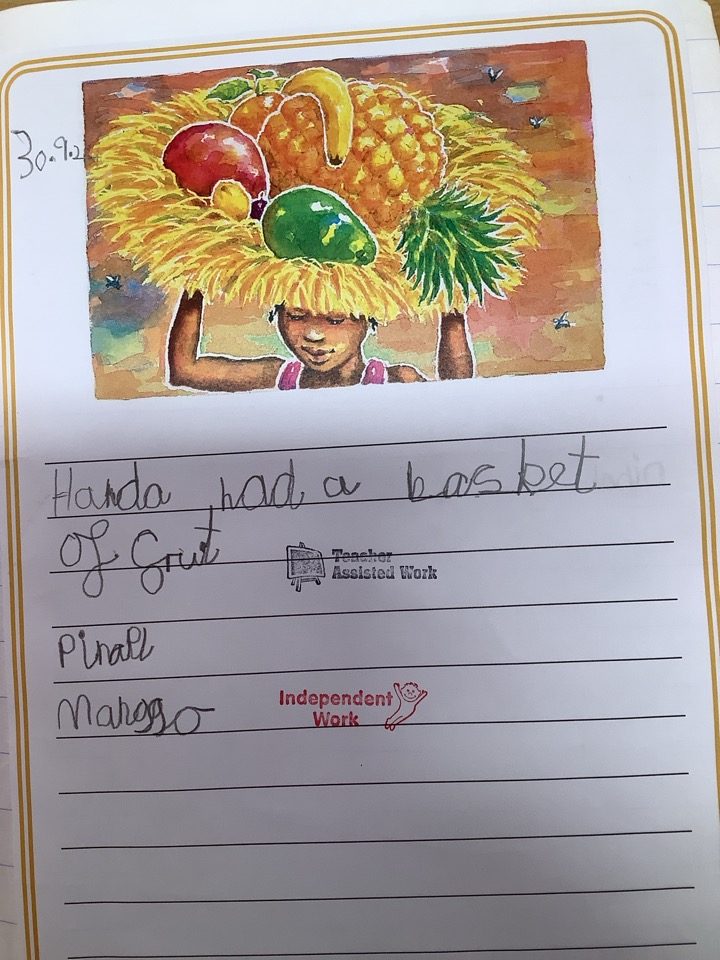 30.9.2
Handa had a basket
of fruit
Teacher
Assisted Work
Pinapl
Manggo
Independent
Work